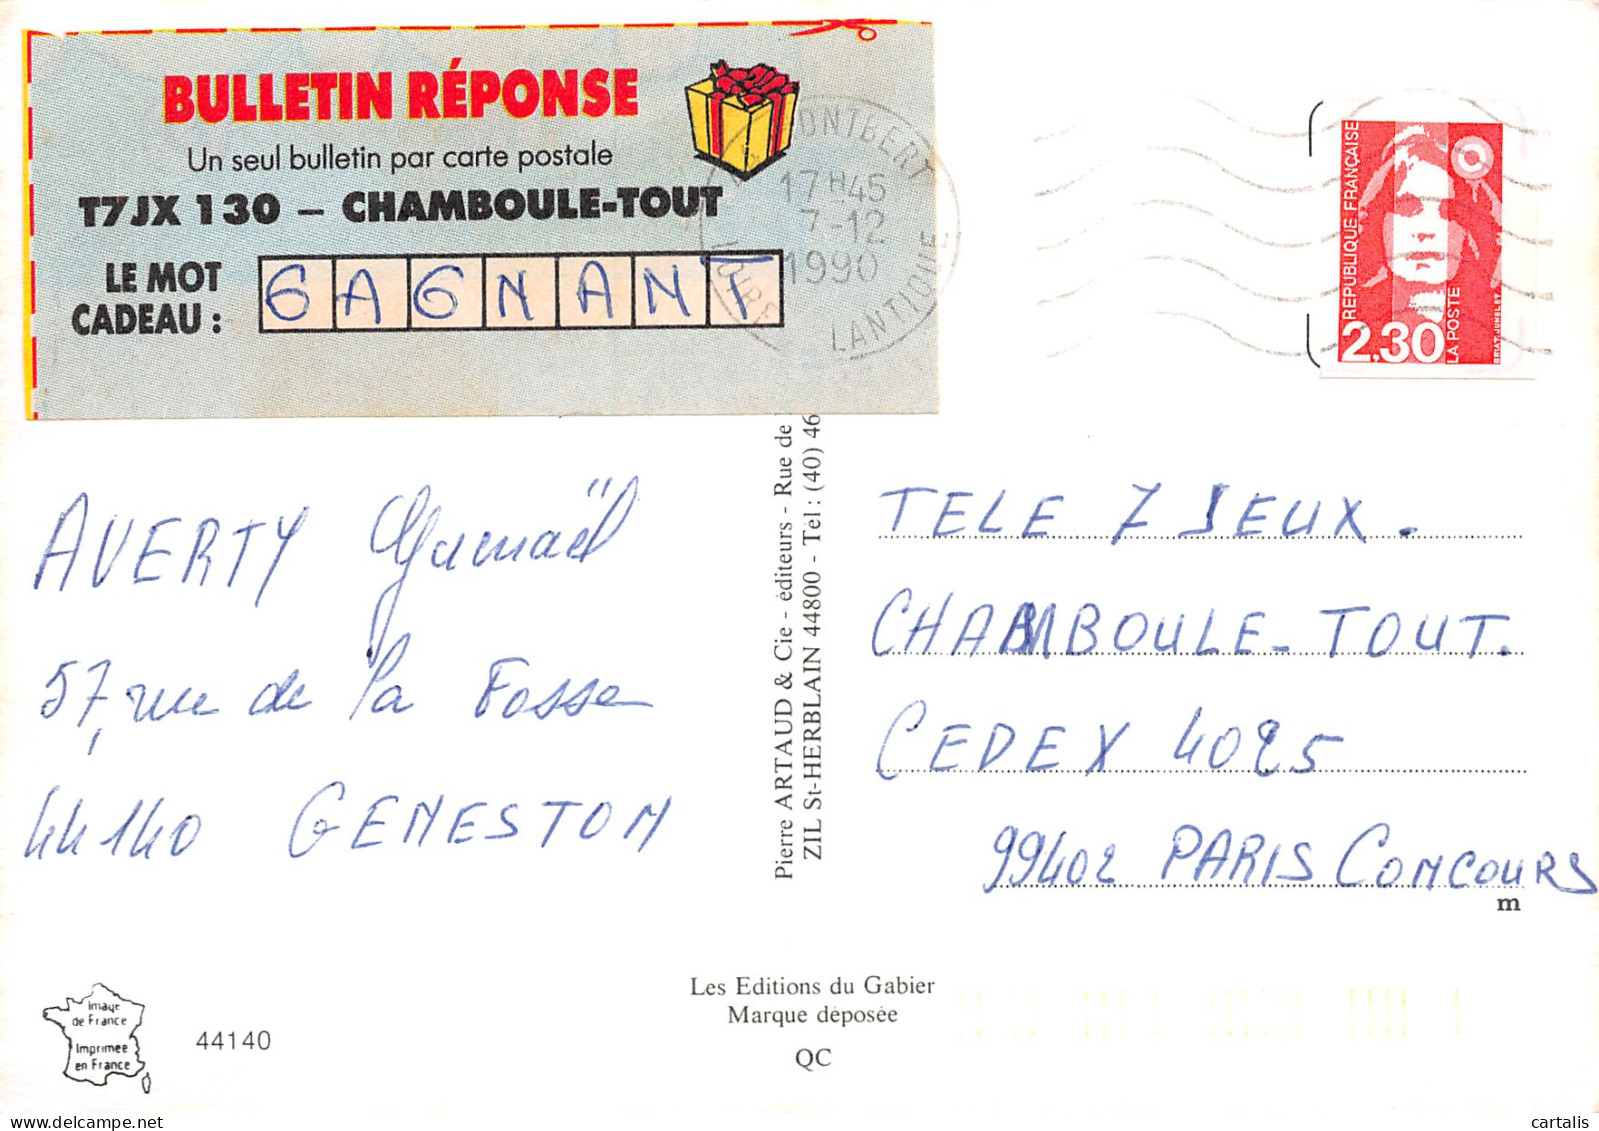 BULLETIN RÉPONSE
Un seul bulletin par carte postale
T7JX 130 – CHAMBOULE-TOUT
LE MOT
CADEAU :
GAGNANT
17H45
7-12
1990
LOIRE
LANTIQUE
REPUBLIQUE FRANÇAISE
2,30
LA POSTE
BRIAT JUMELET
AVERTY
57, rue de la Fosse
44140 GENESTON
Pierre ARTAUD & Cie - éditeurs - Rue de
ZIL St-HERBLAIN 44800 - Tél : (40) 46
TELE 7 JEUX.
CHAMBOULE-TOUT.
CEDEX 4025
99402 PARIS CONCOURS
m
Image
de France
Imprimée
en France
44140
Les Editions du Gabier
Marque déposée
QC
cartalis